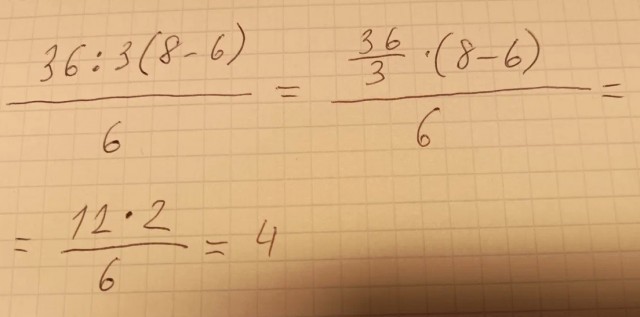 \frac{36:3(8-6)}{6} = \frac{\frac{36}{3} \cdot (8-6)}{6} =
= \frac{12 \cdot 2}{6} = 4